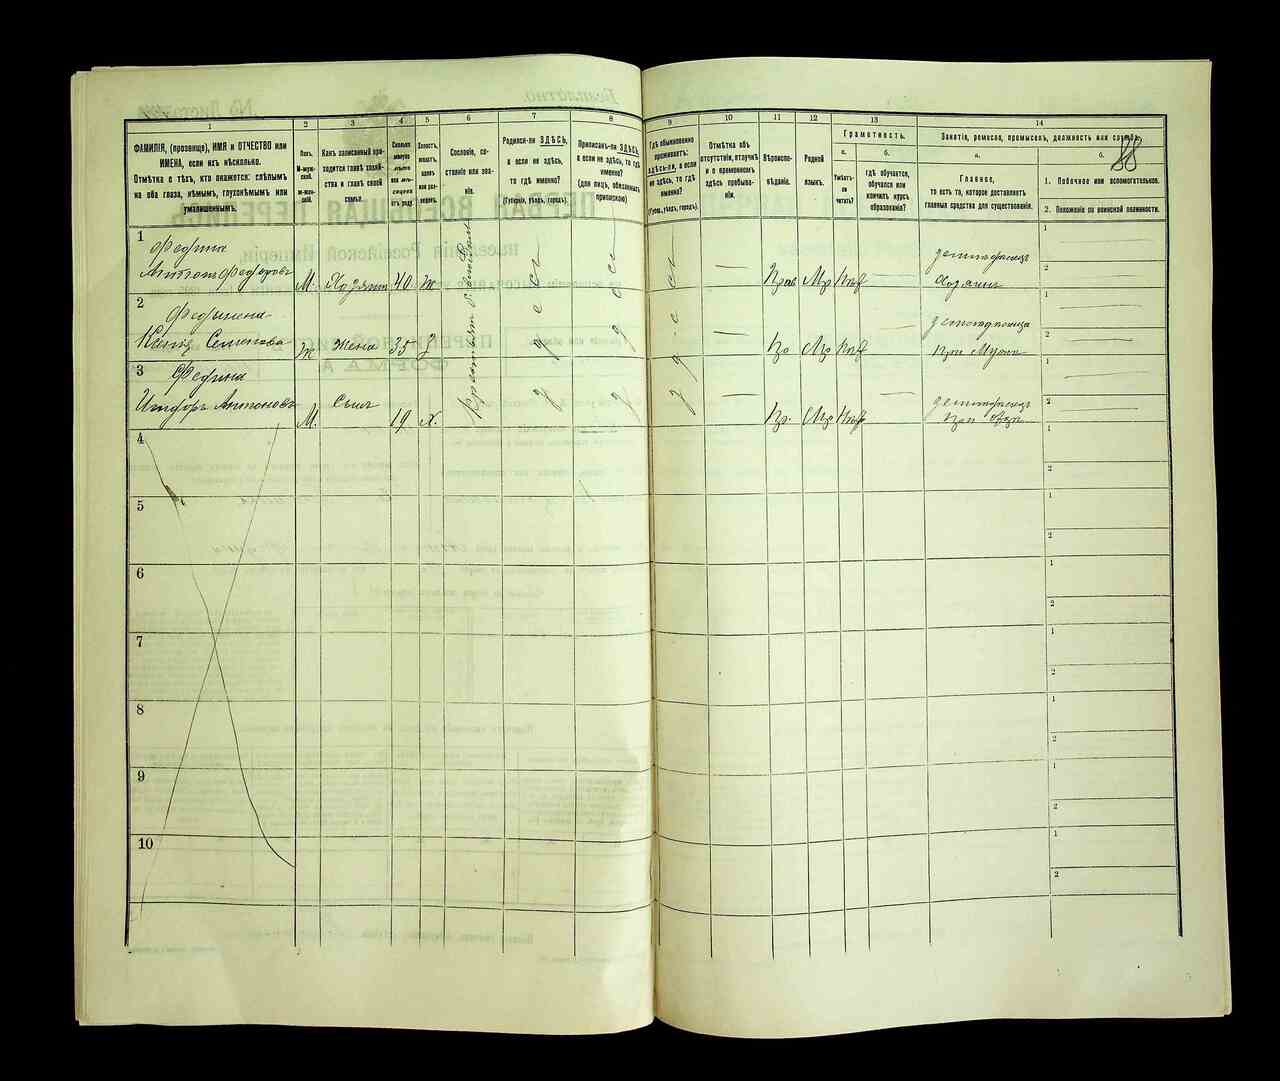 1
2
3
4
5
6
7
8
9
10
11
12
13
14
ФАМИЛІЯ, (прозвище), ИМЯ и ОТЧЕСТВО или
ИМЕНА, если ихъ нѣсколько.
Отмѣтка о тѣхъ, кто окажется: слѣпымъ
на оба глаза, нѣмымъ, глухонѣмымъ или
умалишеннымъ.
Полъ.
М-мужской.
Ж-женскій.
Какъ записанный приходится главѣ хозяйства и главѣ своей семьи.
Сколько минуло лѣтъ или мѣсяцевъ отъ роду
Холостъ, женатъ, вдовъ или разведенъ.
Сословіе, состояніе или званіе.
Родился-ли ЗДѢСЬ,
а если не здѣсь,
то гдѣ именно?
(Губернія, уѣздъ, городъ).
Приписанъ-ли ЗДѢСЬ,
а если не здѣсь, то гдѣ
именно?
(для лицъ, обязанныхъ
припискою)
Гдѣ обыкновенно
проживаетъ:
ЗДѢСЬ-ли, а если
не здѣсь, то гдѣ
именно?
(Губер., уѣздъ, городъ).
Отмѣтка объ
отсутствіи, отлучкѣ
и о временномъ
здѣсь пребываніи.
Вѣроисповѣданіе.
Родной
языкъ.
Грамотность.
а.
Умѣетъ-ли
читать?
б.
гдѣ обучается,
обучался или
кончилъ курсъ
образованія?
Занятіе, ремесло, промыселъ, должность или служба.
88
а.
Главное,
то есть то, которое доставляетъ
главныя средства для существованія.
б.
1. Побочное или вспомогательное.
2. Положеніе по воинской повинности.
1
Федина
Антонъ Федоровъ
М. Хозяинъ 40 ж
Прав Мр Нѣт
земледѣлецъ
Хозяинъ
1
2
2
Семенова
ж Жена 35 З
Пр Мр Нѣт
При Мужѣ
1
2
3
Федина
Антоновъ
М. Сынъ 19 Х.
Пр. Мр Нѣт
земледѣлецъ
При Отцѣ
1
2
4
1
2
5
1
2
6
1
2
7
1
2
8
1
2
9
1
2
10
1
2